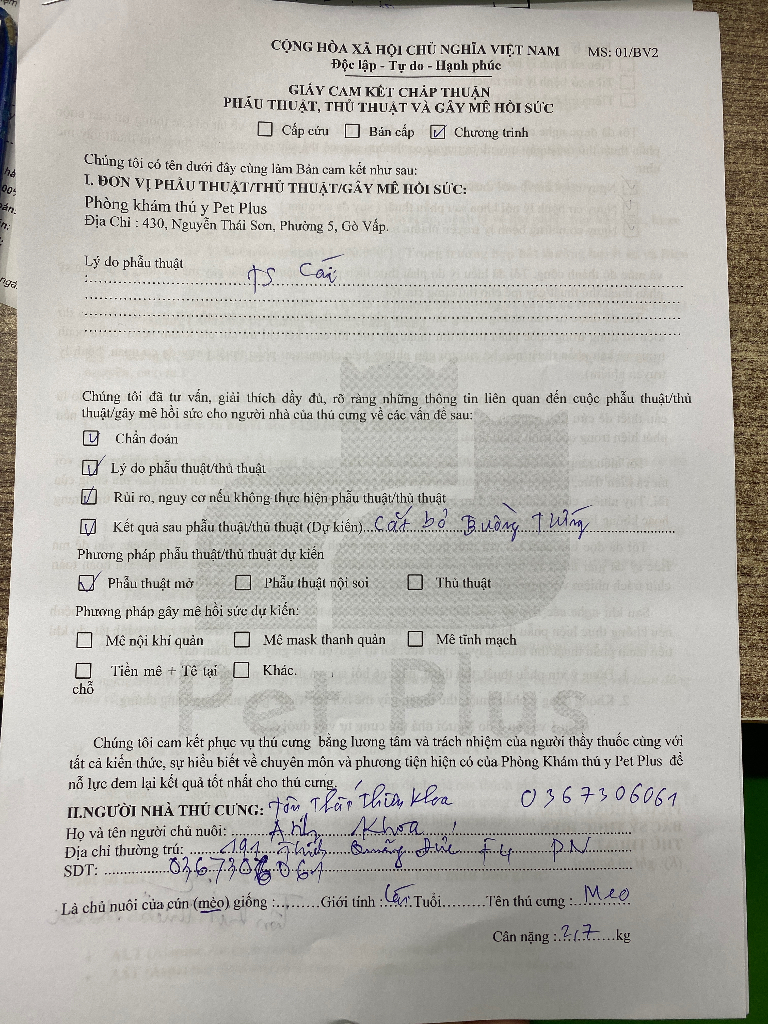 CỘNG HÒA XÃ HỘI CHỦ NGHĨA VIỆT NAM MS: 01/BV2
Độc lập - Tự do - Hạnh phúc
GIẤY CAM KẾT CHẤP THUẬN
PHẪU THUẬT, THỦ THUẬT VÀ GÂY MÊ HỒI SỨC
☐ Cấp cứu ☐ Bán cấp ☑ Chương trình
Chúng tôi có tên dưới đây cùng làm Bản cam kết như sau:
I. ĐƠN VỊ PHẪU THUẬT/THỦ THUẬT/GÂY MÊ HỒI SỨC:
Phòng khám thú y Pet Plus
Địa Chỉ : 430, Nguyễn Thái Sơn, Phường 5, Gò Vấp.
Lý do phẫu thuật
: TS Cái
Chúng tôi đã tư vấn, giải thích đầy đủ, rõ ràng những thông tin liên quan đến cuộc phẫu thuật/thủ
thuật/gây mê hồi sức cho người nhà của thú cưng về các vấn đề sau:
☑ Chẩn đoán
☑ Lý do phẫu thuật/thủ thuật
☑ Rủi ro, nguy cơ nếu không thực hiện phẫu thuật/thủ thuật
☑ Kết quả sau phẫu thuật/thủ thuật (Dự kiến) Cắt bỏ Buồng Trứng
Phương pháp phẫu thuật/thủ thuật dự kiến
☑ Phẫu thuật mở ☐ Phẫu thuật nội soi ☐ Thủ thuật
Phương pháp gây mê hồi sức dự kiến:
☐ Mê nội khí quản ☐ Mê mask thanh quản ☐ Mê tĩnh mạch
☐ Tiền mê + Tê tại ☐ Khác.
chỗ
Pet Plus
Chúng tôi cam kết phục vụ thú cưng bằng lương tâm và trách nhiệm của người thầy thuốc cùng với
tất cả kiến thức, sự hiểu biết về chuyên môn và phương tiện hiện có của Phòng Khám thú y Pet Plus để
nỗ lực đem lại kết quả tốt nhất cho thú cưng.
II.NGƯỜI NHÀ THÚ CƯNG: Tôn Thất Thiên Khoa 0367306061
Họ và tên người chủ nuôi: Anh Khoa
Địa chỉ thường trú: 191 Thích Quảng Đức F4 PN
SĐT: 0367306061
Là chủ nuôi của cún (mèo) giống :.........Giới tính : Cái Tuổi.........Tên thú cưng : Meo
Cân nặng : 2,7 kg